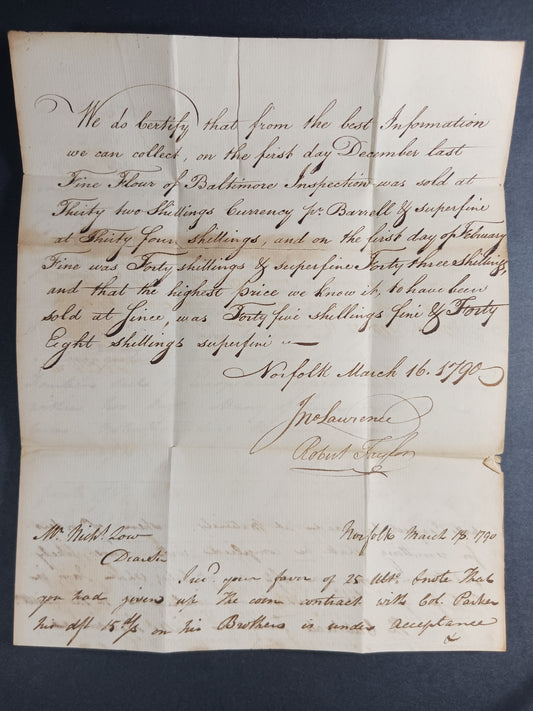 We do Certify that from the best Information
we can collect, on the first day December last
Fine Flour of Baltimore Inspection was sold at
Thirty two Shillings Currency pr. Barrell & superfine
at Thirty four shillings, and on the first day of February
Fine was Forty shillings & superfine Forty three shillings,
and that the highest price we know it, to have been
sold at since, was Forty five shillings fine & Forty
Eight shillings superfine
Norfolk March 16. 1790
Jno Lawrence
Robert Taylor
Mr. Nichs. Low
Norfolk March 18. 1790
Dear Sir
I recd. your favor of 25 Ulto. & note that
you had given up the corn contract with Col. Parker
his dft on his Brothers is under acceptance